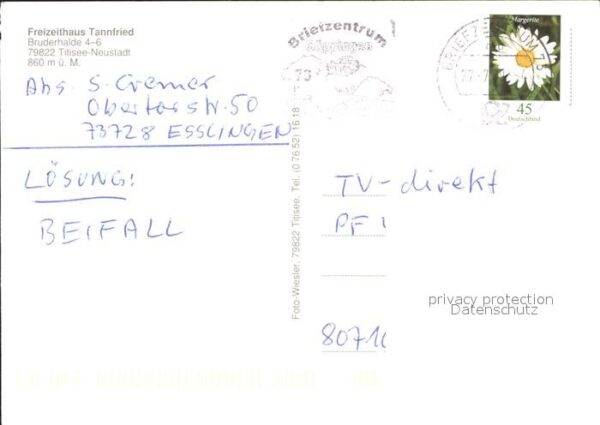 Freizeithaus Tannfried
Bruderhalde 4–6
79822 Titisee-Neustadt
860 m ü. M.
Abs. S. Cremer
Obertorstr. 50
73728 ESSLINGEN
LÖSUNG:
BEIFALL
Foto-Wiesler, 79822 Titisee, Tel. (0 76 52) 16 18
Briefzentrum
Göppingen
73
BRIEFZENTRUM 73
Margerite
45
Deutschland
TV-direkt
PF
8071
privacy protection
Datenschutz